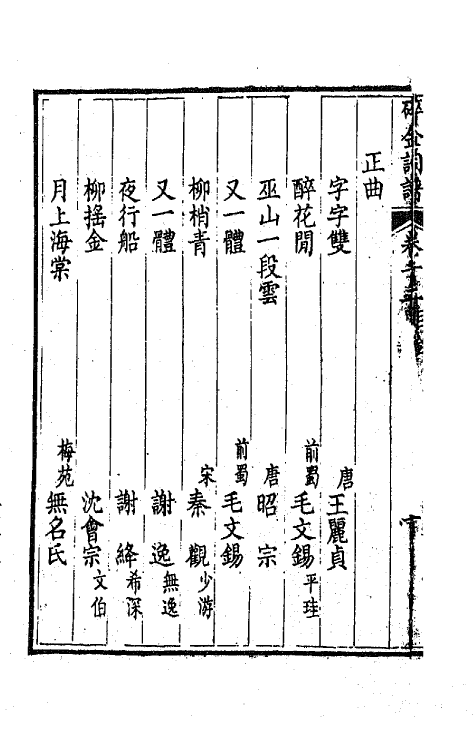 碎金詞譜 卷
正曲
字字雙 唐王麗貞
醉花間 前蜀毛文錫平珪
巫山一段雲 唐昭宗
又一體 前蜀毛文錫
柳梢青 宋秦觀少游
又一體 謝逸無逸
夜行船 謝絳希深
柳搖金 沈會宗文伯
月上海棠 梅苑無名氏